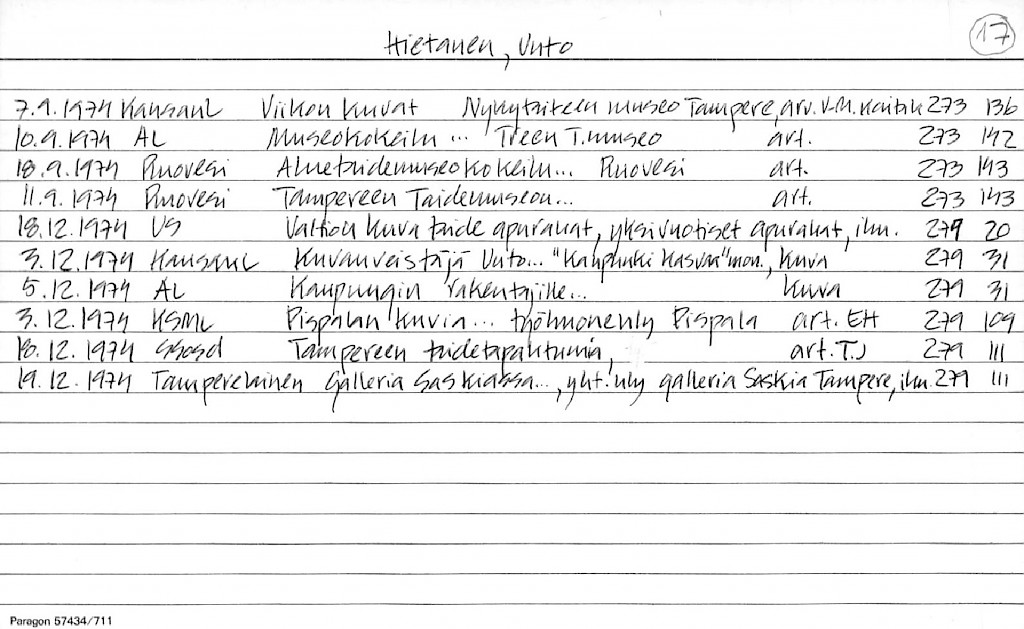 17
Hietanen, Unto
7.9.1974 KansanL Viikon kuvat Nykytaiteen museo Tampere, arv. V-M. Kaitila 273 136
10.9.1974 AL Museokokeilu ... Treen T.museo art. 273 142
18.9.1974 Ruovesi Aluetaidemuseokokeilu... Ruovesi art. 273 143
11.9.1974 Ruovesi Tampereen Taidemuseon... art. 273 143
18.12.1974 US Valtion kuvataide apurahat, yksivuotiset apurahat, ilm. 279 20
3.12.1974 KansanL Kuvanveistäjä Unto... "Kaupunki kasvaa" mon., kuva 279 31
5.12.1974 AL Kaupungin rakentajille... kuva 279 31
3.12.1974 KSML Pispalan kuvia... työhuonenäly Pispala art. EH 279 109
18.12.1974 SSosd Tampereen taidetapahtumia, art. TJ 279 111
19.12.1974 Tamperelainen Galleria Saskiassa..., yht.näly galleria Saskia Tampere, ilm. 279 111
Paragon 57434/711